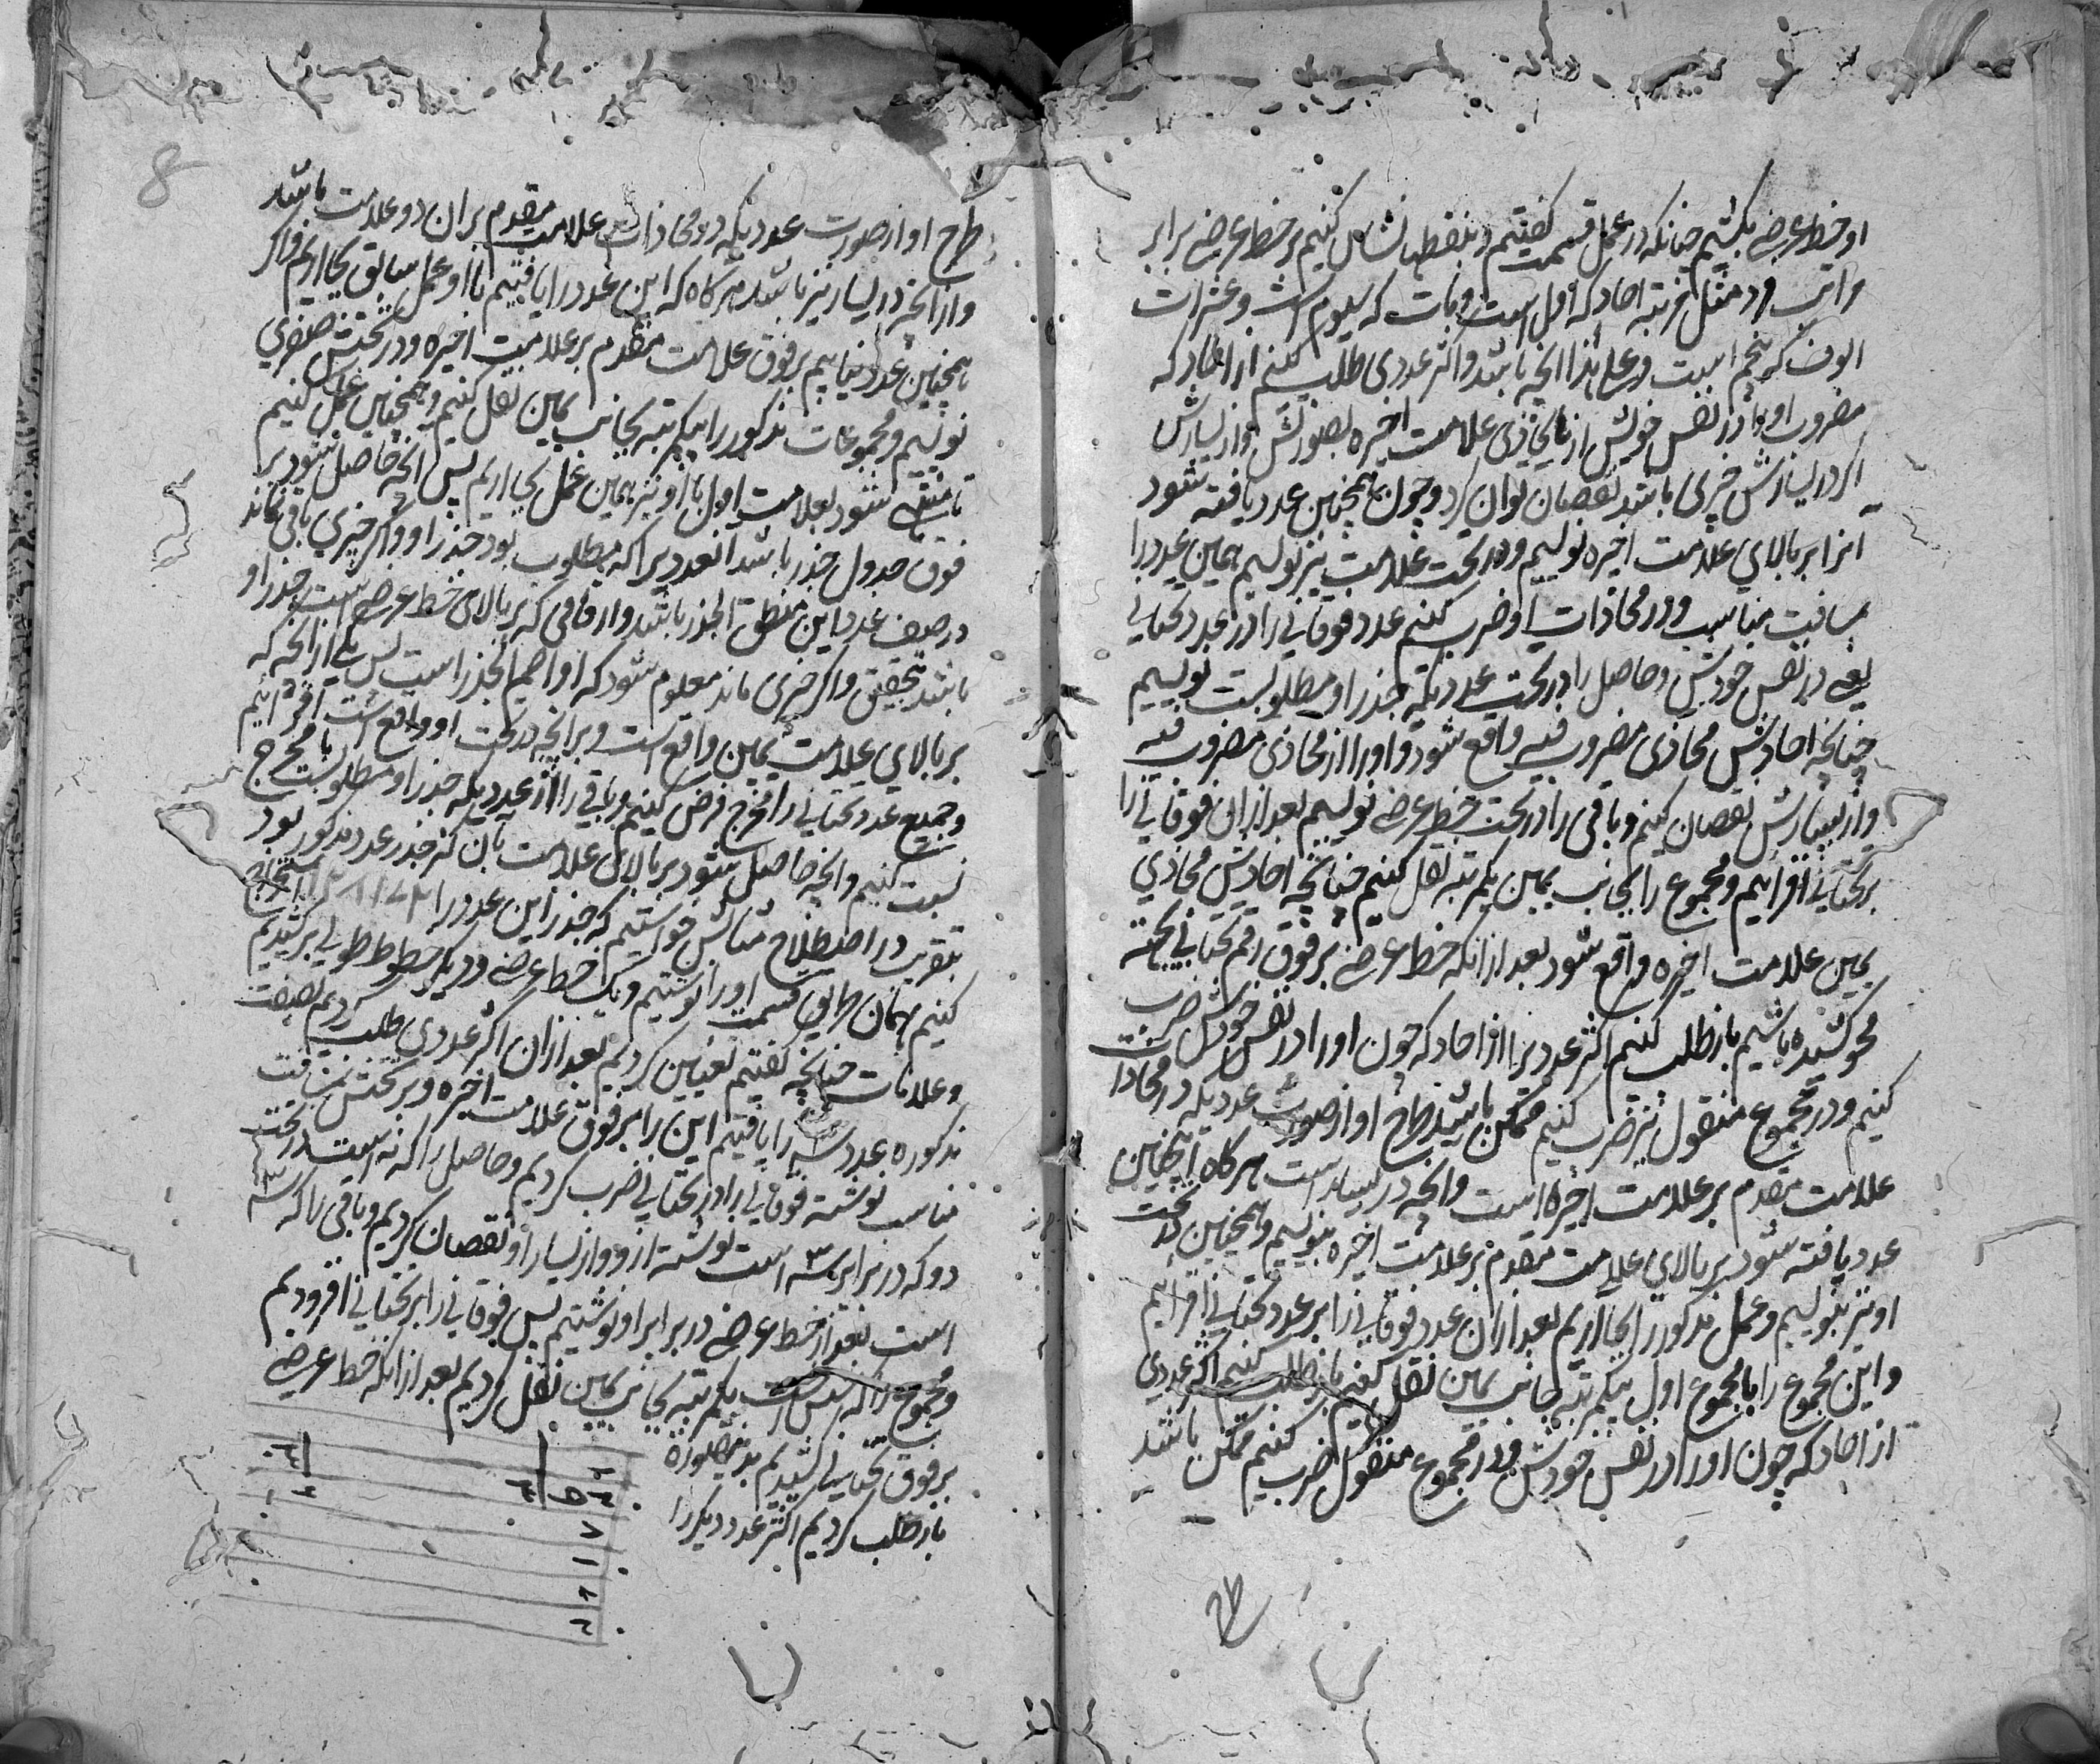 او خط عرضی بکشیم چنانکه در عمل قسمت گفتیم و بنقطها نشان کنیم بر خط عرضی برابر
مراتب فرد مثل مرتبه احاد که اول است و مات که سیوم است و عشرات
الوف که پنجم است و علی هذا انچه باشد و اکثر عددی طلب کنیم از احاد که
مضروب او را در نفس خویش از محاذی علامت اخیره بصورتش و از یسارش
اگر در یسارش چیزی باشد نقصان توان کرد و چون همچنین عدد یافته شود
آنرا بر بالای علامت اخیره نویسیم و در تحت علامت نیز نویسیم همین عدد را
بمسافت مناسب و در محاذات او ضرب کنیم عدد فوقانی را در عدد تحتانی
یعنی در نفس خودش و حاصل را در تحت عددیکه جذر او مطلوبست نویسیم
چنانچه احادش محاذی مضروب فیه واقع شود و او را از محاذی مضروب فیه
و از یسارش نقصان کنیم و باقی را در تحت خط عرضی نویسیم بعد ازان فوقانی را
بر تحتانی افزائیم و مجموع را بجانب یمین یکمرتبه نقل کنیم چنانچه احادش محاذی
یمین علامت اخیره واقع شود بعد از انکه خط عرضی بر فوق رقم تحتانی بجهة
محو کشیده باشیم باز طلب کنیم اکثر عددیرا از احاد که چون او را در نفس خویش ضرب
کنیم و در مجموع منقول نیز ضرب کنیم ممکن باشد طرح او از صورت عددیکه در محاذات
علامت مقدم بر علامت اخیره است و انچه در یسار است هر گاه اینچنین
عدد یافته شود بر بالای علامت مقدم بر علامت اخیره بنویسیم و همچنین در تحت
او نیز بنویسیم و عمل مذکور را بجا اریم بعد ازان عدد فوقانی را بر عدد تحتانی افزائیم
و این مجموع را با مجموع اول بیکمرتبه جانب یمین نقل کنیم باز طلب کنیم اکثر عددی
از احاد که چون او را در نفس خودش و در مجموع منقول ضرب کنیم ممکن باشد
8
طرح او از صورت عددیکه در محاذات علامت مقدم بران دو علامت باشد
و از انچه در یسار نیز باشد هر گاه که این عدد را یافتیم با او عمل سابق بجا اریم و اگر
همچنین عدد نیابیم بر فوق علامت مقدم بر علامت اخیره و در تحتش صفری
نویسیم و مجموعات مذکور را بیکمرتبه بجانب یمین نقل کنیم و همچنین عمل کنیم
تا منتهی شود بعلامت اول با او نیز همین عمل بجا اریم پس انچه حاصل شود بر
فوق جدول جذر باشد انعددیرا که مطلوب بود جذر او و اگر چیزی باقی نماند
در صف عدد این منطق الجذر باشد و ارقامی که بر بالای خط عرضی است جذر او
باشد بتحقیق و اگر چیزی ماند معلوم شود که او اصم الجذر است پس یکی از انچه که
بر بالای علامت یمین واقع است و برانچه در تحت او واقع است افزائیم
و جمیع عدد تحتانی را مخرج فرض کنیم و باقی را از عددیکه جذر او مطلوبست با مخرج
نسبت کنیم و انچه حاصل شود بر بالای علامت با ان کسر جذر عدد مذکور بود
بتقریب در اصطلاح مثالش خواستیم که جذر این عدد را استخراج
کنیم بهمان طریق قسمت او را نوشتیم و یک خط عرضی و دیگر خطوط طولی بر کشیدیم
و علامات چنانچه گفتیم تعیین کردیم بعد ازان اکثر عددی طلب کردیم بصفت
مذکوره عدد سه را یافتیم این را بر فوق علامت اخیره و بر تحتش بمسافت
مناسب نوشته فوقانی را در تحتانی ضرب کردیم و حاصل را که نه است در تحت
دو که در برابر سه است نوشته از دو و از یسار او نقصان کردیم و باقی را که سه
است بعد از خط عرضی در برابر او نوشتیم پس فوقانی را بر تحتانی افزودیم
و مجموع را که شش است یکمرتبه بجانب یمین نقل کردیم بعد از انکه خط عرضی
بر فوق تحتانی کشیدیم بدینصورة
باز طلب کردیم اکثر عدد دیگر را